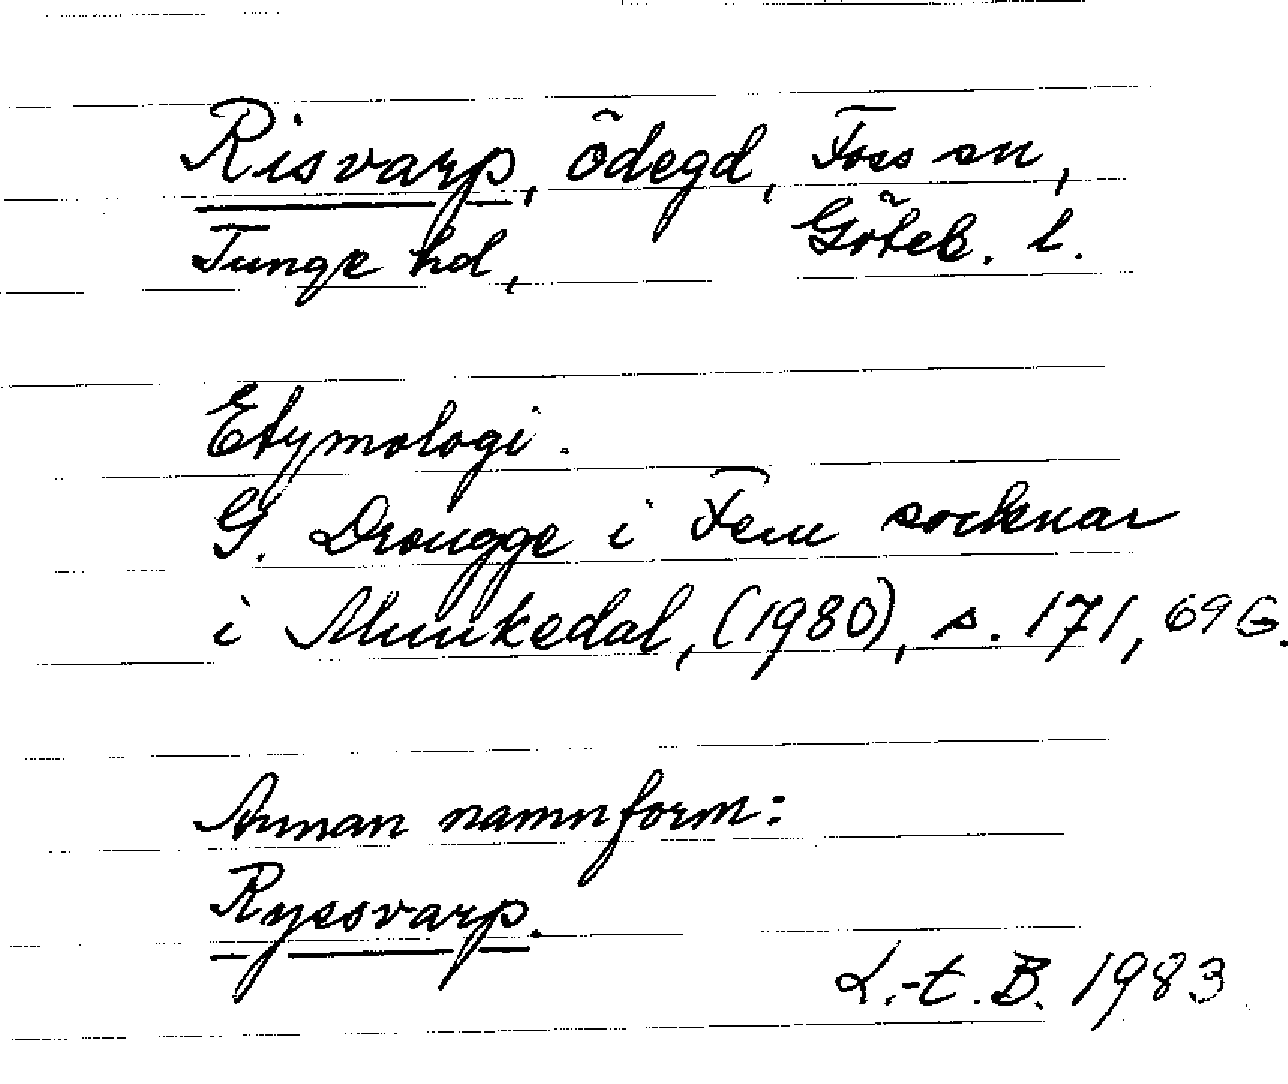 Risvarp, ödegd, Foss sn,
Tunge hd, Göteb. l.
Etymologi.
G. Drougge i Fem socknar
i Munkedal, (1980), s. 171, 696.
Annan namnform:
Ryssvarp.
L.-t. B. 1983